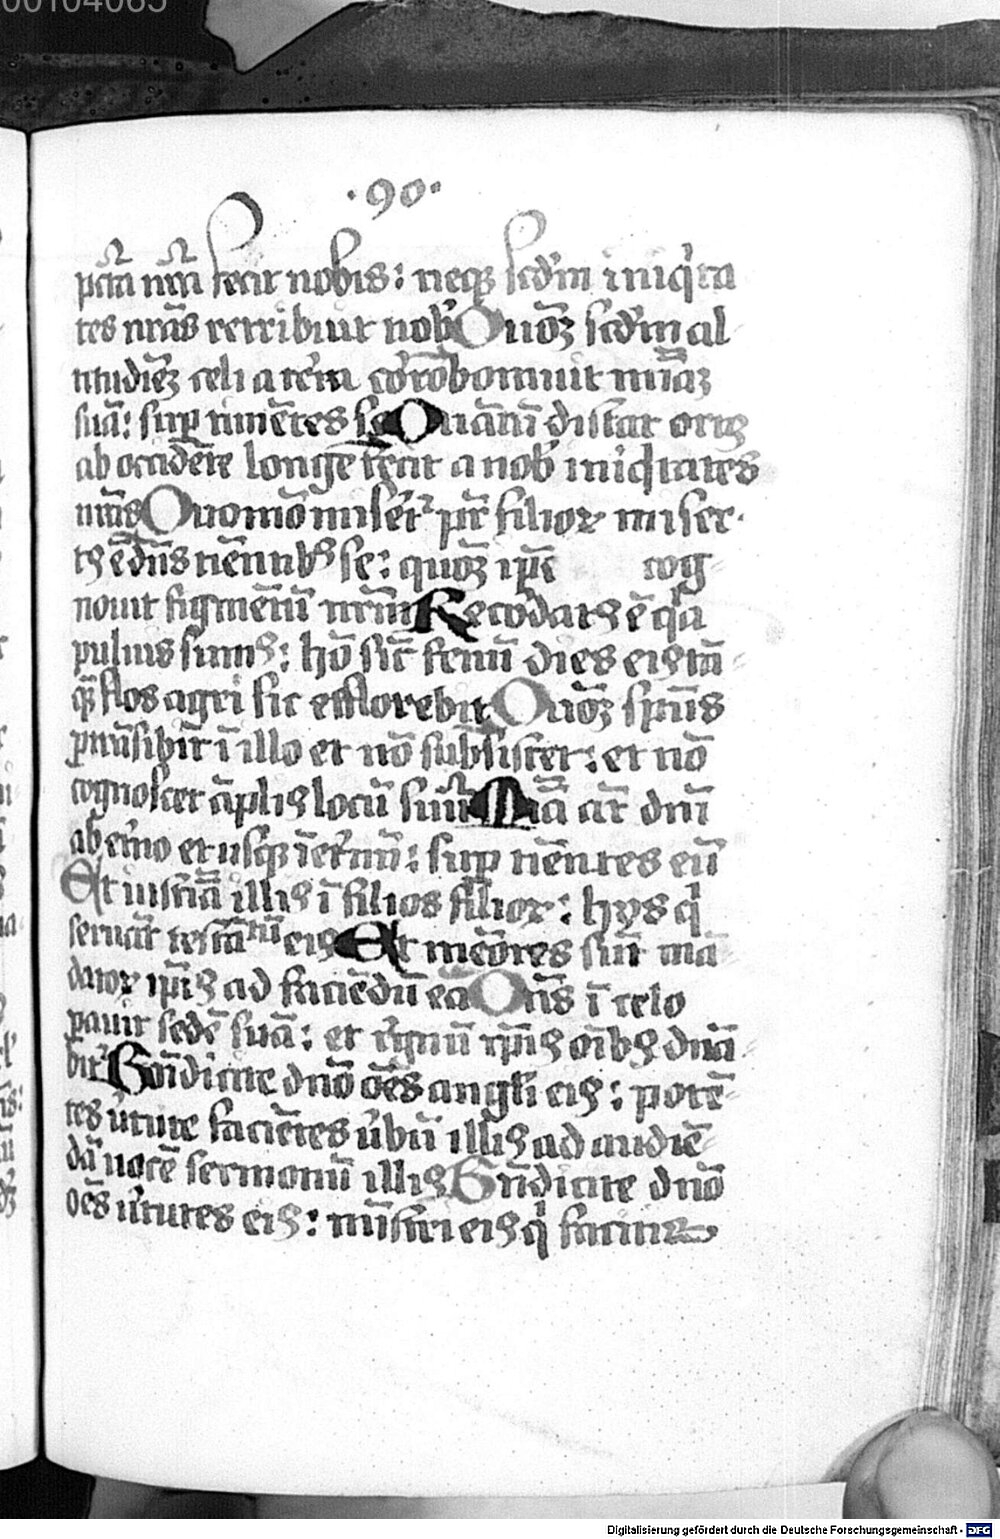 00104065
·90·
pctā nrā fecit nobis: neqꝫ scd'm iniqⁱta
tes nrās retribuit nob' Quōꝫ scd'm al
titudiēꝫ celi a terra cōroborauit miāꝫ
suā: sup timētes se Quātū distat ortꝫ
ab occidēte longe fecit a nob' iniqⁱtates
nrās Quomō miseret' pr̄ filioꝝ miser
tꝰ ē dn̄s timētibꝰ se: quōꝫ ipē cog
nouit figmētū nrm̄ Recordatꝰ ē qa
puluis sumꝰ: hō sic fenū dies eiꝰ tā
qꝫ flos agri sic efflorebit Quōꝫ spūs
ptrāsibit ī illo et nō subsistet: et nō
cognoscet āpliꝰ locū suū Mīa at dnī
ab et'no et usqꝫ ī et'nū: sup timētes eū
Et iusticīa illiꝰ ī filios filioꝝ: hys qⁱ
seruāt testātū eiꝰ Et memores sūt mā
datoꝝ ipīꝰ ad faciēdū ea Dns ī celo
pauit sedē suā: et regnū ipīꝰ oībꝰ dnā
bit' Bndicite dnō oēs angli eiꝰ: potē
tes ūtute faciētes ūbū illiꝰ ad audiē
dā uocē sermonū illiꝰ Bndicite dnō
oēs ūtutes eiꝰ: mīstri eiꝰ qⁱ facitis
Digitalisierung gefördert durch die Deutsche Forschungsgemeinschaft - DFG